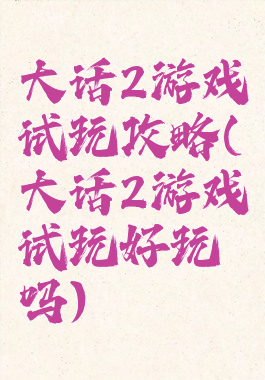 大话2游戏
试玩攻略(
大话2游戏
试玩好玩
吗)